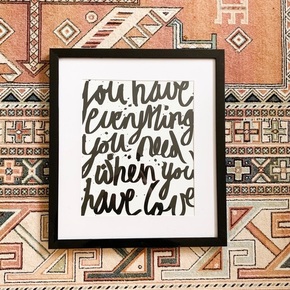 you have
everything
you need
when you
have love